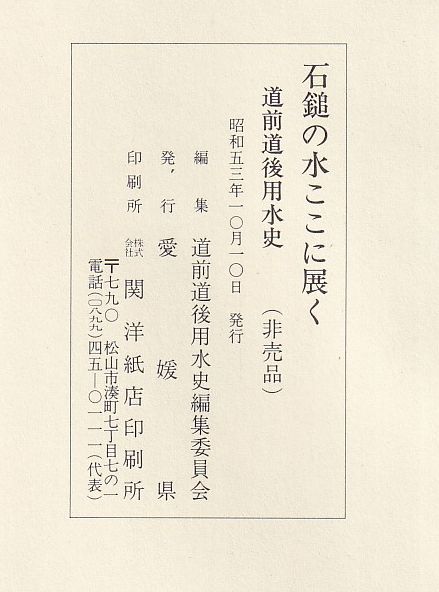 石鎚の水ここに展く
道前道後用水史 (非売品)
昭和五三年一〇月一〇日 発行
編集 道前道後用水史編集委員会
発行 愛媛県
印刷所 株式会社 関洋紙店印刷所
〒七九〇 松山市湊町七丁目七の一
電話(〇八九九)四五―〇一一一(代表)